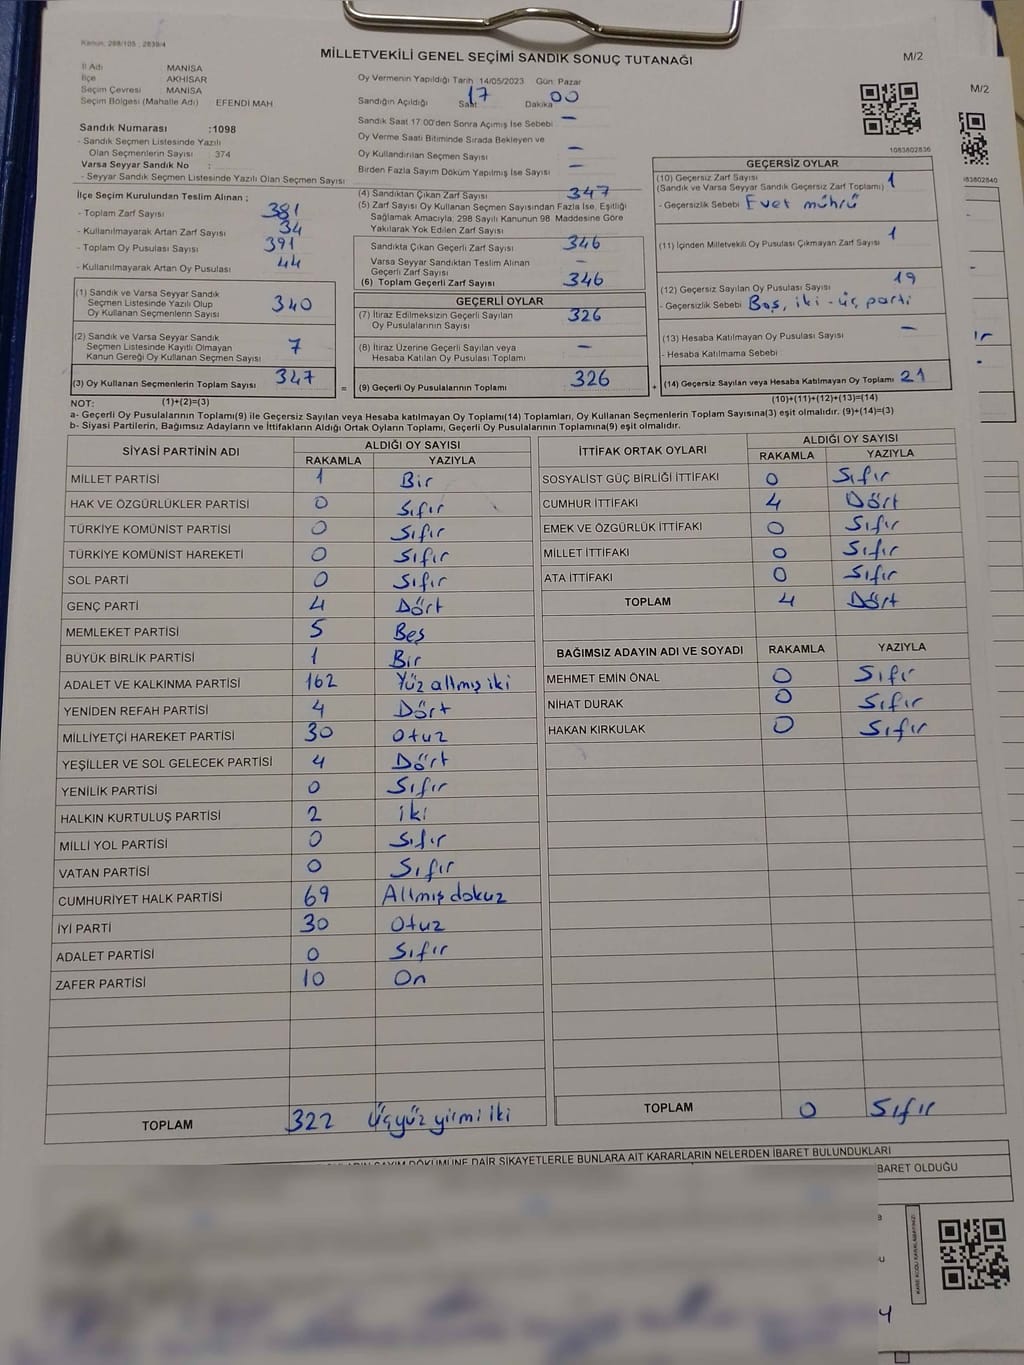 Kanun: 298/105 ; 2839/4
MİLLETVEKİLİ GENEL SEÇİMİ SANDIK SONUÇ TUTANAĞI
M/2
M/2
İl Adı : MANİSA
İlçe : AKHİSAR
Seçim Çevresi : MANİSA
Seçim Bölgesi (Mahalle Adı) EFENDİ MAH
Sandık Numarası :1098
- Sandık Seçmen Listesinde Yazılı
Olan Seçmenlerin Sayısı : 374
Varsa Seyyar Sandık No :
- Seyyar Sandık Seçmen Listesinde Yazılı Olan Seçmen Sayısı
Oy Vermenin Yapıldığı Tarih 14/05/2023 Gün: Pazar
Sandığın Açıldığı Saat 17 Dakika 00
Sandık Saat 17:00'den Sonra Açımış İse Sebebi –
Oy Verme Saati Bitiminde Sırada Bekleyen ve
Oy Kullandırılan Seçmen Sayısı –
Birden Fazla Sayım Döküm Yapılmış İse Sayısı –
1083802836
83802840
İlçe Seçim Kurulundan Teslim Alınan ;
- Toplam Zarf Sayısı 381
- Kullanılmayarak Artan Zarf Sayısı 34
- Toplam Oy Pusulası Sayısı 391
- Kullanılmayarak Artan Oy Pusulası 44
(1) Sandık ve Varsa Seyyar Sandık
Seçmen Listesinde Yazılı Olup
Oy Kullanan Seçmenlerin Sayısı 340
(2) Sandık ve Varsa Seyyar Sandık
Seçmen Listesinde Kayıtlı Olmayan
Kanun Gereği Oy Kullanan Seçmen Sayısı 7
(3) Oy Kullanan Seçmenlerin Toplam Sayısı 347 =
(1)+(2)=(3)
(4) Sandıktan Çıkan Zarf Sayısı 347
(5) Zarf Sayısı Oy Kullanan Seçmen Sayısından Fazla İse, Eşitliği
Sağlamak Amacıyla; 298 Sayılı Kanunun 98. Maddesine Göre
Yakılarak Yok Edilen Zarf Sayısı
Sandıkta Çıkan Geçerli Zarf Sayısı 346
Varsa Seyyar Sandıktan Teslim Alınan
Geçerli Zarf Sayısı –
(6) Toplam Geçerli Zarf Sayısı 346
GEÇERLİ OYLAR
(7) İtiraz Edilmeksizin Geçerli Sayılan
Oy Pusulalarının Sayısı 326
(8) İtiraz Üzerine Geçerli Sayılan veya
Hesaba Katılan Oy Pusulası Toplamı –
(9) Geçerli Oy Pusulalarının Toplamı 326 +
GEÇERSİZ OYLAR
(10) Geçersiz Zarf Sayısı
(Sandık ve Varsa Seyyar Sandık Geçersiz Zarf Toplamı) 1
- Geçersizlik Sebebi Evet mührü
(11) İçinden Milletvekili Oy Pusulası Çıkmayan Zarf Sayısı 1
(12) Geçersiz Sayılan Oy Pusulası Sayısı 19
- Geçersizlik Sebebi Boş, iki - üç parti
(13) Hesaba Katılmayan Oy Pusulası Sayısı –
- Hesaba Katılmama Sebebi
(14) Geçersiz Sayılan veya Hesaba Katılmayan Oy Toplamı 21
(10)+(11)+(12)+(13)=(14)
NOT:
a- Geçerli Oy Pusulalarının Toplamı(9) ile Geçersiz Sayılan veya Hesaba katılmayan Oy Toplamı(14) Toplamları, Oy Kullanan Seçmenlerin Toplam Sayısına(3) eşit olmalıdır. (9)+(14)=(3)
b- Siyasi Partilerin, Bağımsız Adayların ve İttifakların Aldığı Ortak Oyların Toplamı, Geçerli Oy Pusulalarının Toplamına(9) eşit olmalıdır.
SİYASİ PARTİNİN ADI
ALDIĞI OY SAYISI
RAKAMLA YAZIYLA
MİLLET PARTİSİ 1 Bir
HAK VE ÖZGÜRLÜKLER PARTİSİ 0 Sıfır
TÜRKİYE KOMÜNİST PARTİSİ 0 Sıfır
TÜRKİYE KOMÜNİST HAREKETİ 0 Sıfır
SOL PARTİ 0 Sıfır
GENÇ PARTİ 4 Dört
MEMLEKET PARTİSİ 5 Beş
BÜYÜK BİRLİK PARTİSİ 1 Bir
ADALET VE KALKINMA PARTİSİ 162 Yüz altmış iki
YENİDEN REFAH PARTİSİ 4 Dört
MİLLİYETÇİ HAREKET PARTİSİ 30 Otuz
YEŞİLLER VE SOL GELECEK PARTİSİ 4 Dört
YENİLİK PARTİSİ 0 Sıfır
HALKIN KURTULUŞ PARTİSİ 2 iki
MİLLİ YOL PARTİSİ 0 Sıfır
VATAN PARTİSİ 0 Sıfır
CUMHURİYET HALK PARTİSİ 69 Altmış dokuz
İYİ PARTİ 30 Otuz
ADALET PARTİSİ 0 Sıfır
ZAFER PARTİSİ 10 On
TOPLAM 322 Üçyüz yirmi iki
İTTİFAK ORTAK OYLARI
ALDIĞI OY SAYISI
RAKAMLA YAZIYLA
SOSYALİST GÜÇ BİRLİĞİ İTTİFAKI 0 Sıfır
CUMHUR İTTİFAKI 4 Dört
EMEK VE ÖZGÜRLÜK İTTİFAKI 0 Sıfır
MİLLET İTTİFAKI 0 Sıfır
ATA İTTİFAKI 0 Sıfır
TOPLAM 4 Dört
BAĞIMSIZ ADAYIN ADI VE SOYADI RAKAMLA YAZIYLA
MEHMET EMİN ÖNAL 0 Sıfır
NİHAT DURAK 0 Sıfır
HAKAN KIRKULAK 0 Sıfır
TOPLAM 0 Sıfır
SAYIM DÖKÜMÜNE DAİR ŞİKAYETLERLE BUNLARA AİT KARARLARIN NELERDEN İBARET BULUNDUKLARI
BARET OLDUĞU